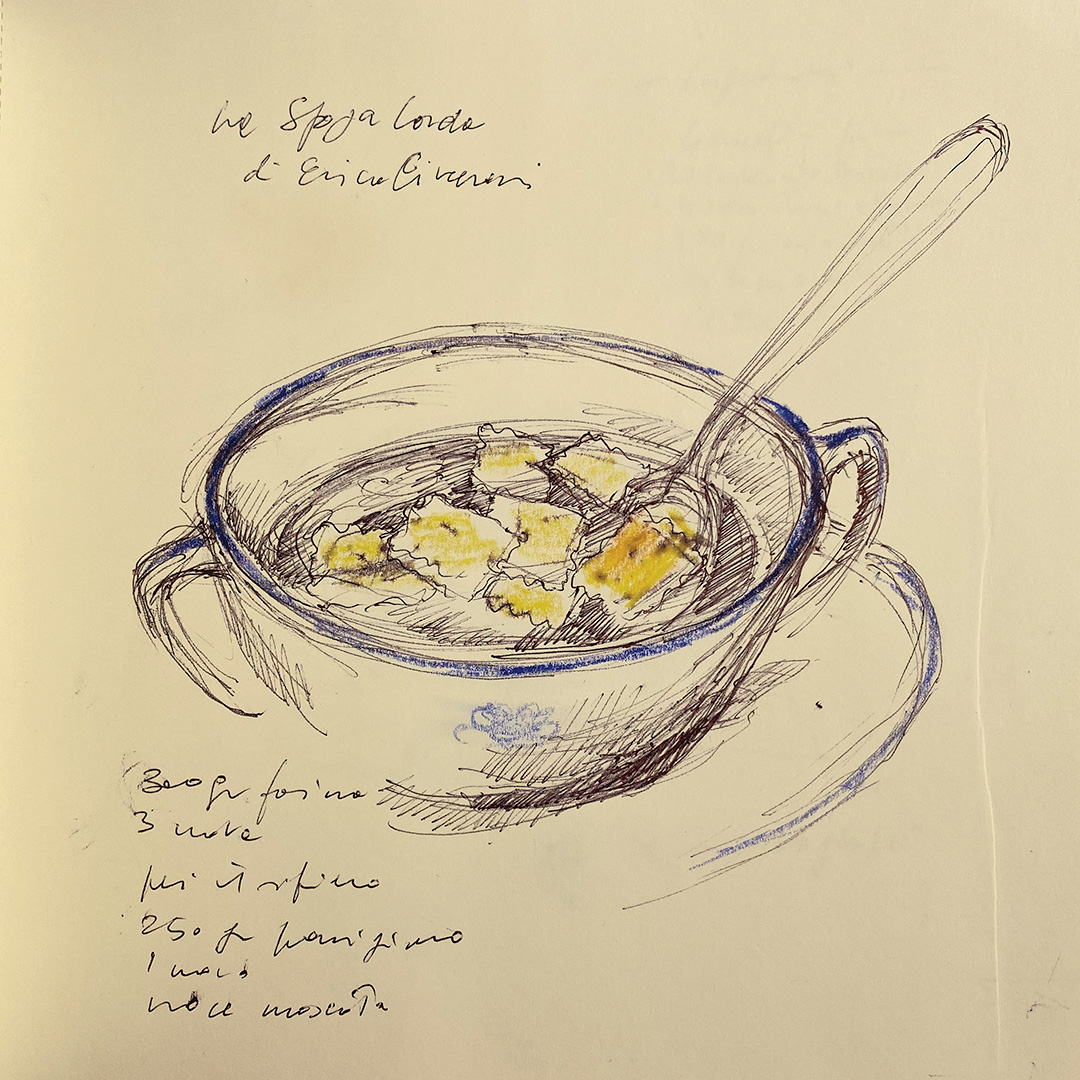 la Spoja lorda
di Erica
300 gr farina
3 uova
per il ripieno
250 gr parmigiano
1 uovo
noce moscata